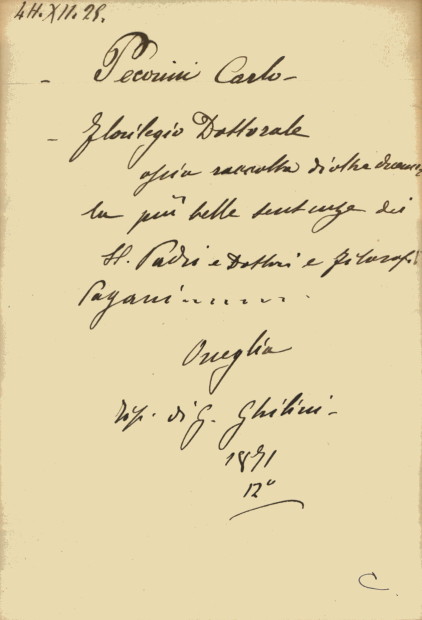 4H.XII.25.
Peconini Carlo-
- Florilegio Dottorale
ossia raccolta di oltre
le più belle sentenze dei
SS. Padri e Dottori e Filosofi
Pagani
Oneglia
Tip. di G. Ghilini-
1871
12°
C